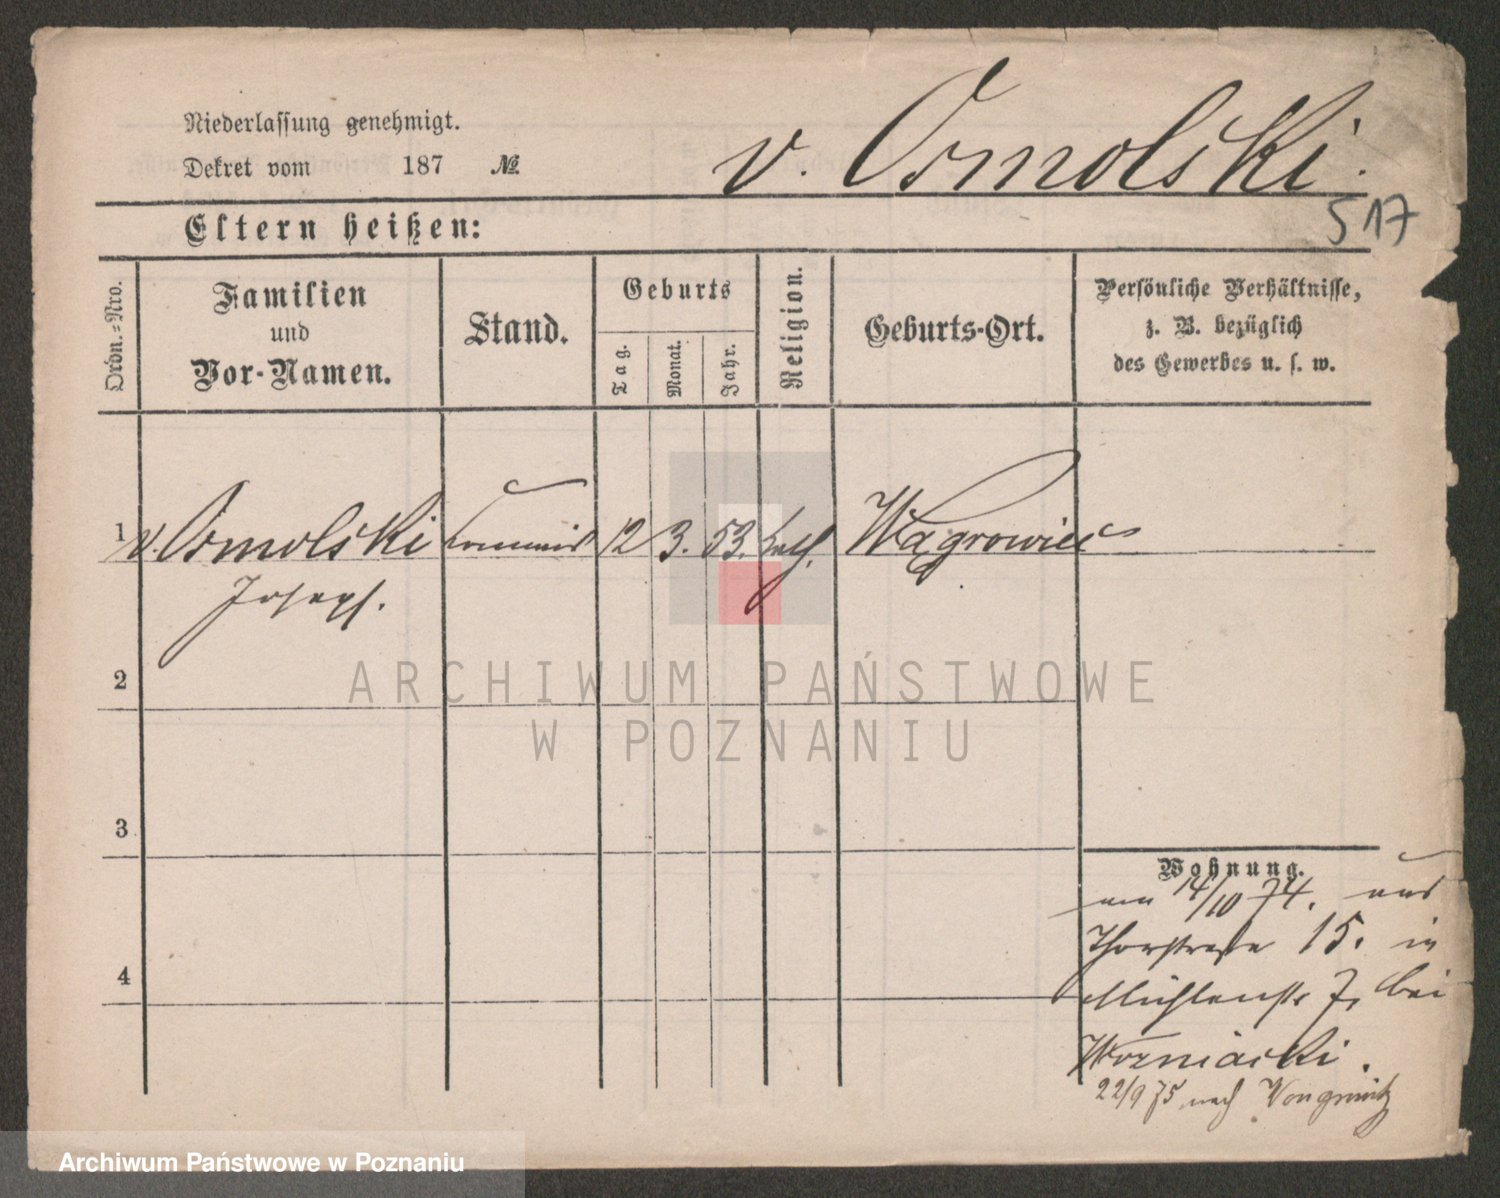 Niederlassung genehmigt.
Dekret vom 187 №
v. Osmolski.
517
Eltern heißen:
Ordn.-Nro.
Familien
und
Vor-Namen.
Stand.
Geburts
Tag.
Monat.
Jahr.
Religion.
Geburts-Ort.
Persönliche Verhältnisse,
z. B. bezüglich
des Gewerbes u. s. w.
1 v. Osmolski Commis 12 3. 53. kath. Wągrowiec
Joseph.
2
3
4
Wohnung.
am 14/10 74. aus
Thorstraße 15. in
Mühlenstr 7, bei
Wozniacki.
22/9 75 nach Wongrowitz
ARCHIWUM PAŃSTWOWE
W POZNANIU
Archiwum Państwowe w Poznaniu